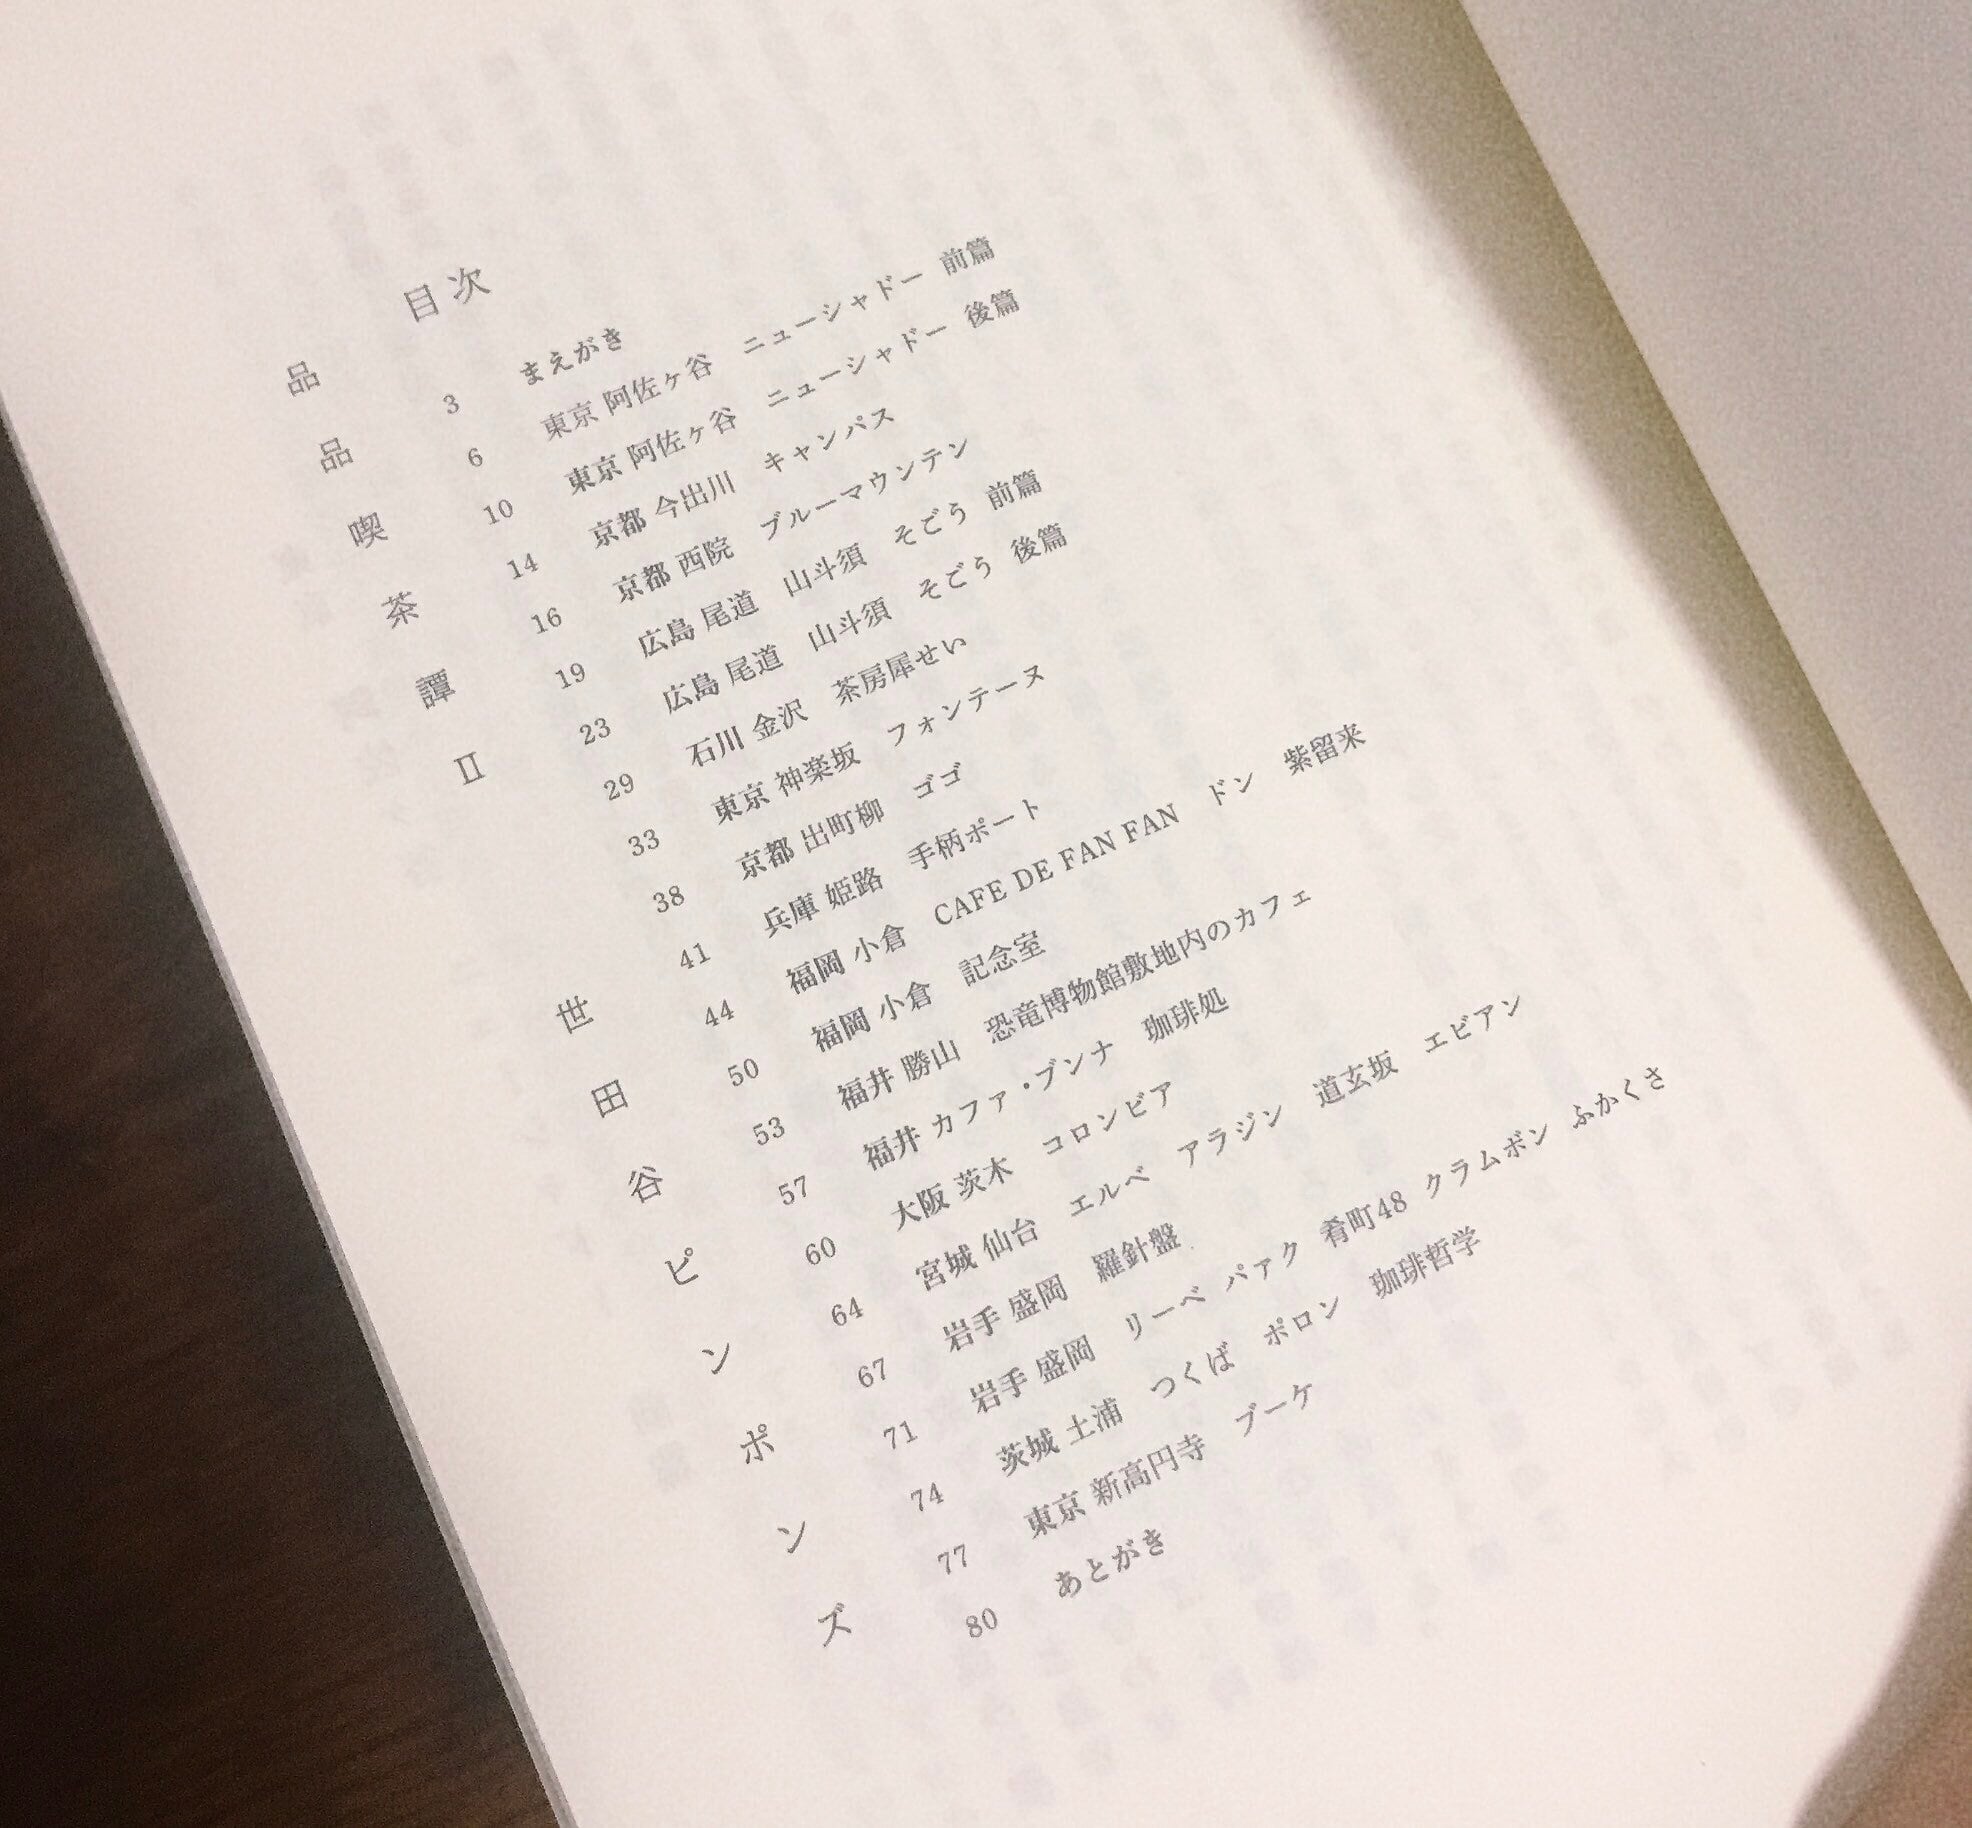 目次
品品喫茶譚 Ⅱ
世田谷ピンポンズ
3 まえがき
6 東京 阿佐ヶ谷 ニューシャドー 前篇
10 東京 阿佐ヶ谷 ニューシャドー 後篇
14 京都 今出川 キャンパス
16 京都 西院 ブルーマウンテン
19 広島 尾道 山斗須 そごう 前篇
23 広島 尾道 山斗須 そごう 後篇
29 石川 金沢 茶房犀せい
33 東京 神楽坂 フォンテーヌ
38 京都 出町柳 ゴゴ
41 兵庫 姫路 手柄ポート
44 福岡 小倉 CAFE DE FAN FAN ドン 紫留来
50 福岡 小倉 記念室
53 福井 勝山 恐竜博物館敷地内のカフェ
57 福井 カファ・ブンナ 珈琲処
60 大阪 茨木 コロンビア
64 宮城 仙台 エルベ アラジン 道玄坂 エビアン
67 岩手 盛岡 羅針盤
71 岩手 盛岡 リーベ パァク 肴町48 クラムボン ふかくさ
74 茨城 土浦 つくば ポロン 珈琲哲学
77 東京 新高円寺 ブーケ
80 あとがき